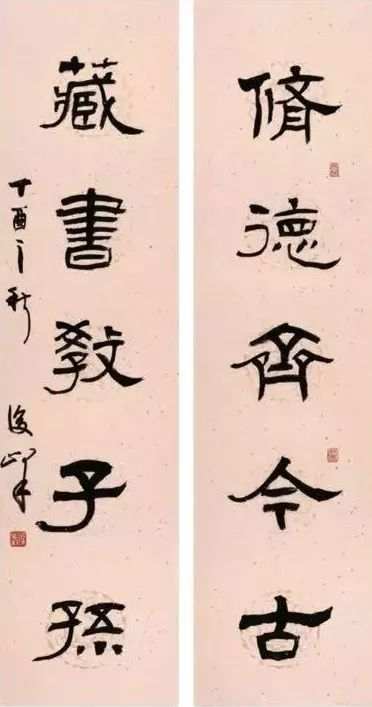 脩德齊今古
藏書教子孫
丁酉之秋
後峰